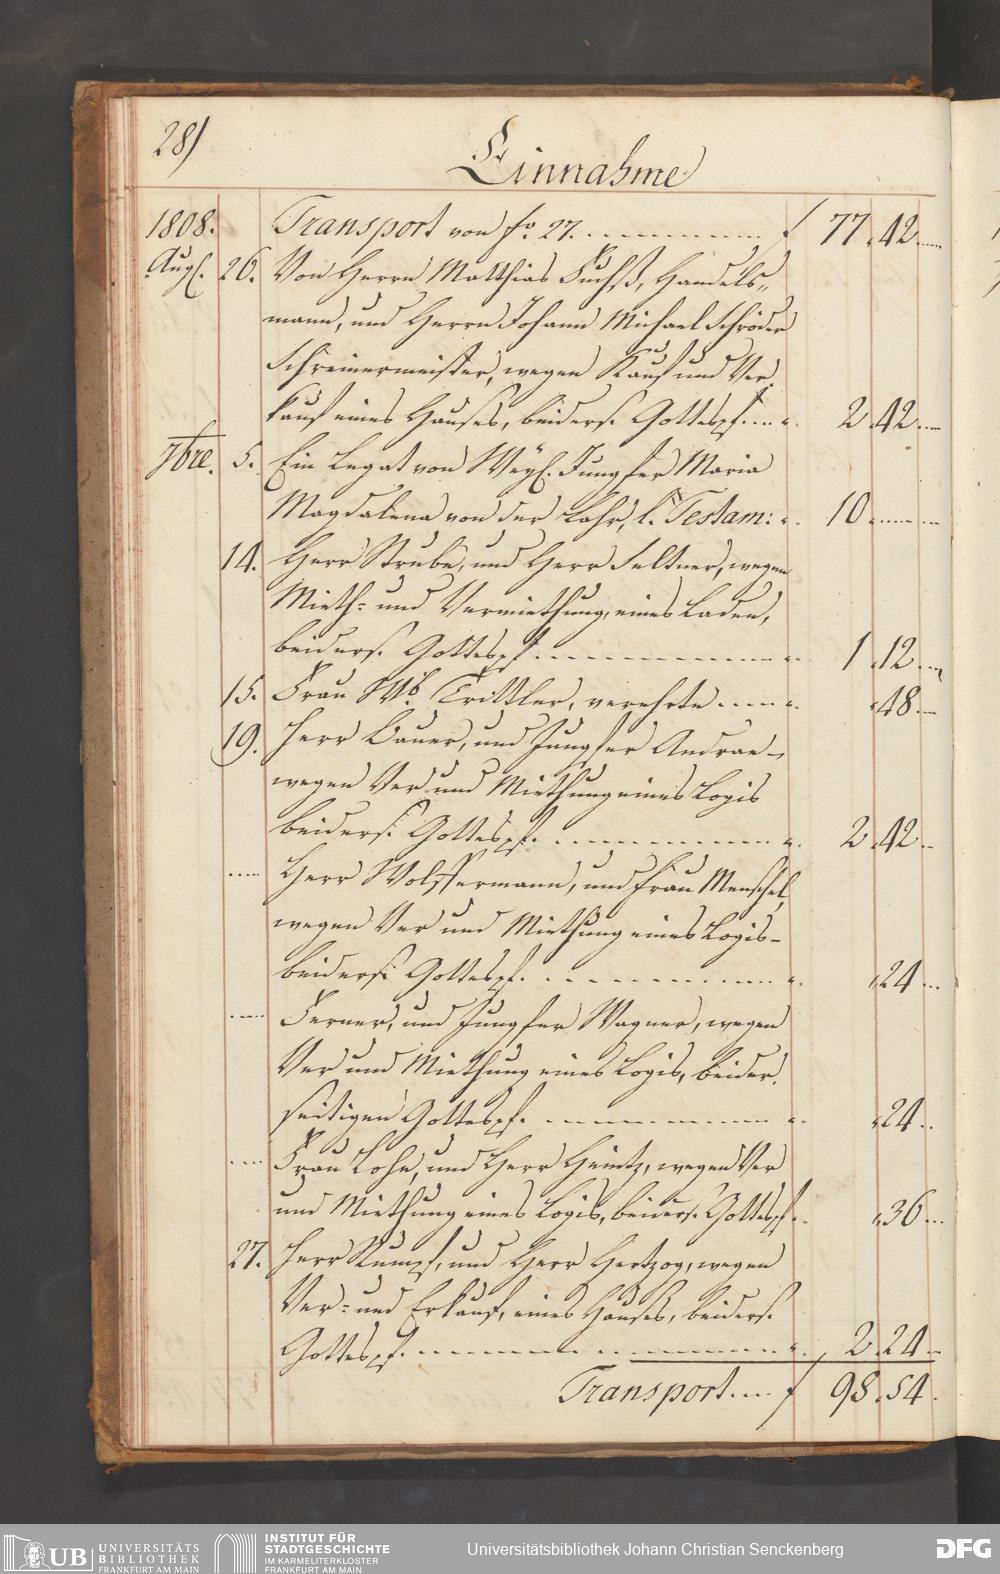 28)
Einnahme
1808. Transport von fo. 27. f 77 .42
Augs. 26. Von Herrn Matthias Fuchs, Handels„
mann, und Herrn Johann Michael Schröder
Schreinermeister, wegen Kauf und Ver.
kauf eines Hauses, beiders. Gottespf. 2 .42
7bre. 5. Ein Legat von Weyl. Jungfer Maria
Magdalena von der Lahr, l. Testam: 10
14. Herr Strube, und Herr Feltner, wegen
Mieth= und Vermiethung, eines Laden,
beiders. Gottespf. 1 .12
15. Frau Wb. Trittler, verehrte 48
19. Herr Bauer, und Jungfer Andrae
wegen Ver und Miethung eines Logis
beiders. Gottespf. 2 .42
Herr Wolffermann, und Frau Menschel,
wegen Ver und Miethung eines Logis
beiders. Gottespf. 24
Ferner, und Jungfer Wagner, wegen
Ver und Miethung eines Logis, beider.
seitigen Gottespf. 24
Frau Lohr, und Herr Heintz, wegen Ver
und Miethung eines Logis, beiders. Gottespf. 36
27. Herr Rumpf, und Herr Hertzog, wegen
Ver= und Erkauf, eines Hauses, beiders.
Gottespf. 2 .24
Transport f 98 .54
UB UNIVERSITÄTS
BIBLIOTHEK
FRANKFURT AM MAIN
INSTITUT FÜR
STADTGESCHICHTE
IM KARMELITERKLOSTER
FRANKFURT AM MAIN
Universitätsbibliothek Johann Christian Senckenberg
DFG